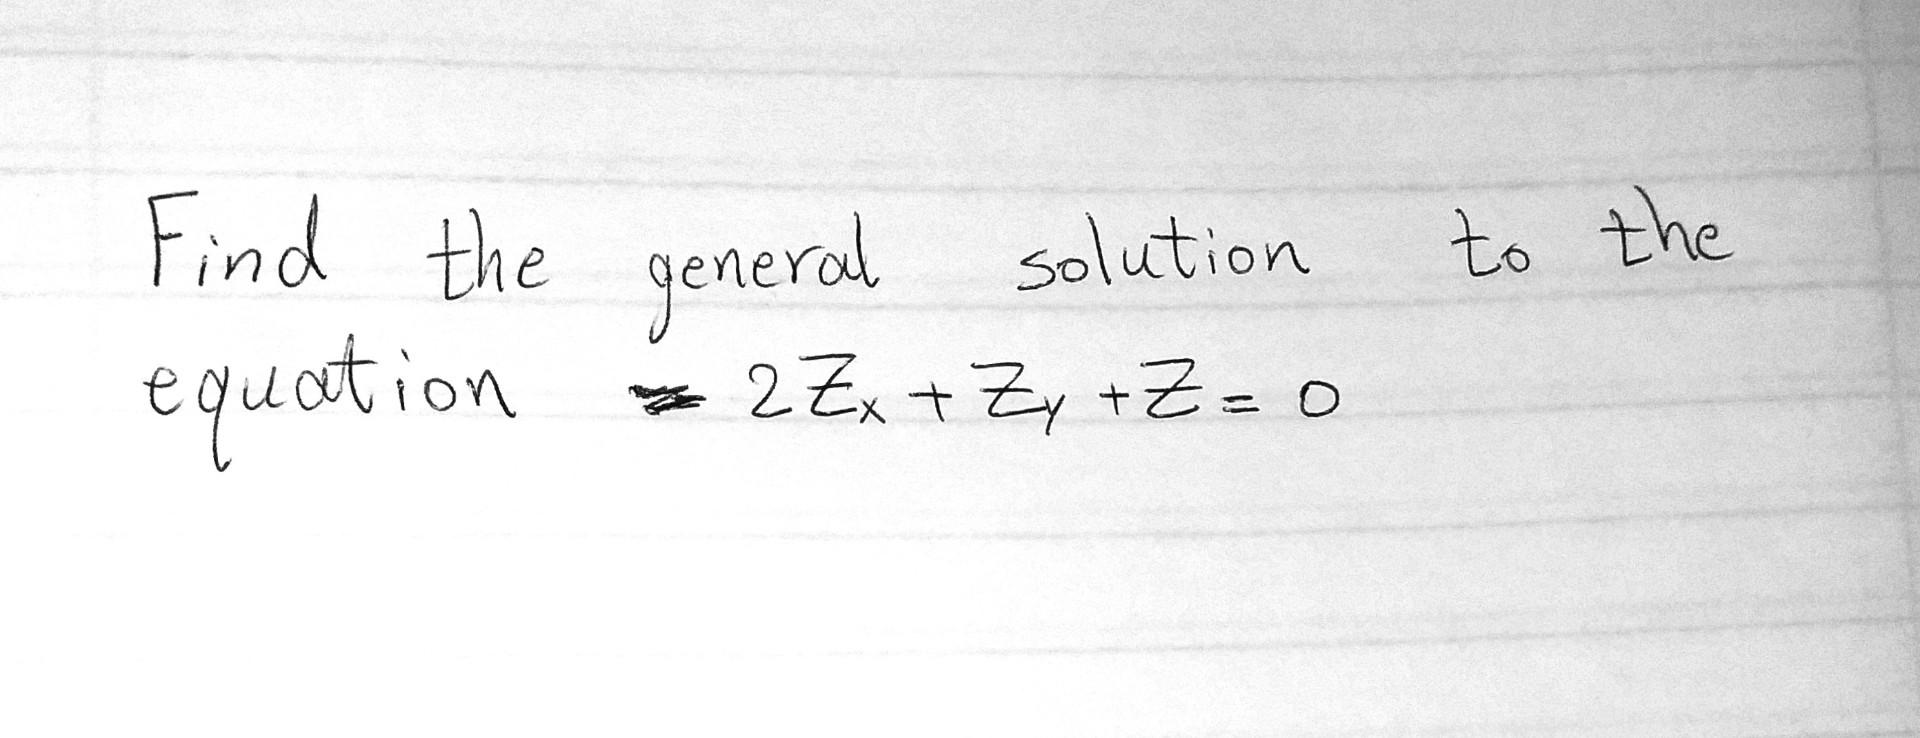 Find the general solution to the
equation 2Zx + Zy + Z = 0